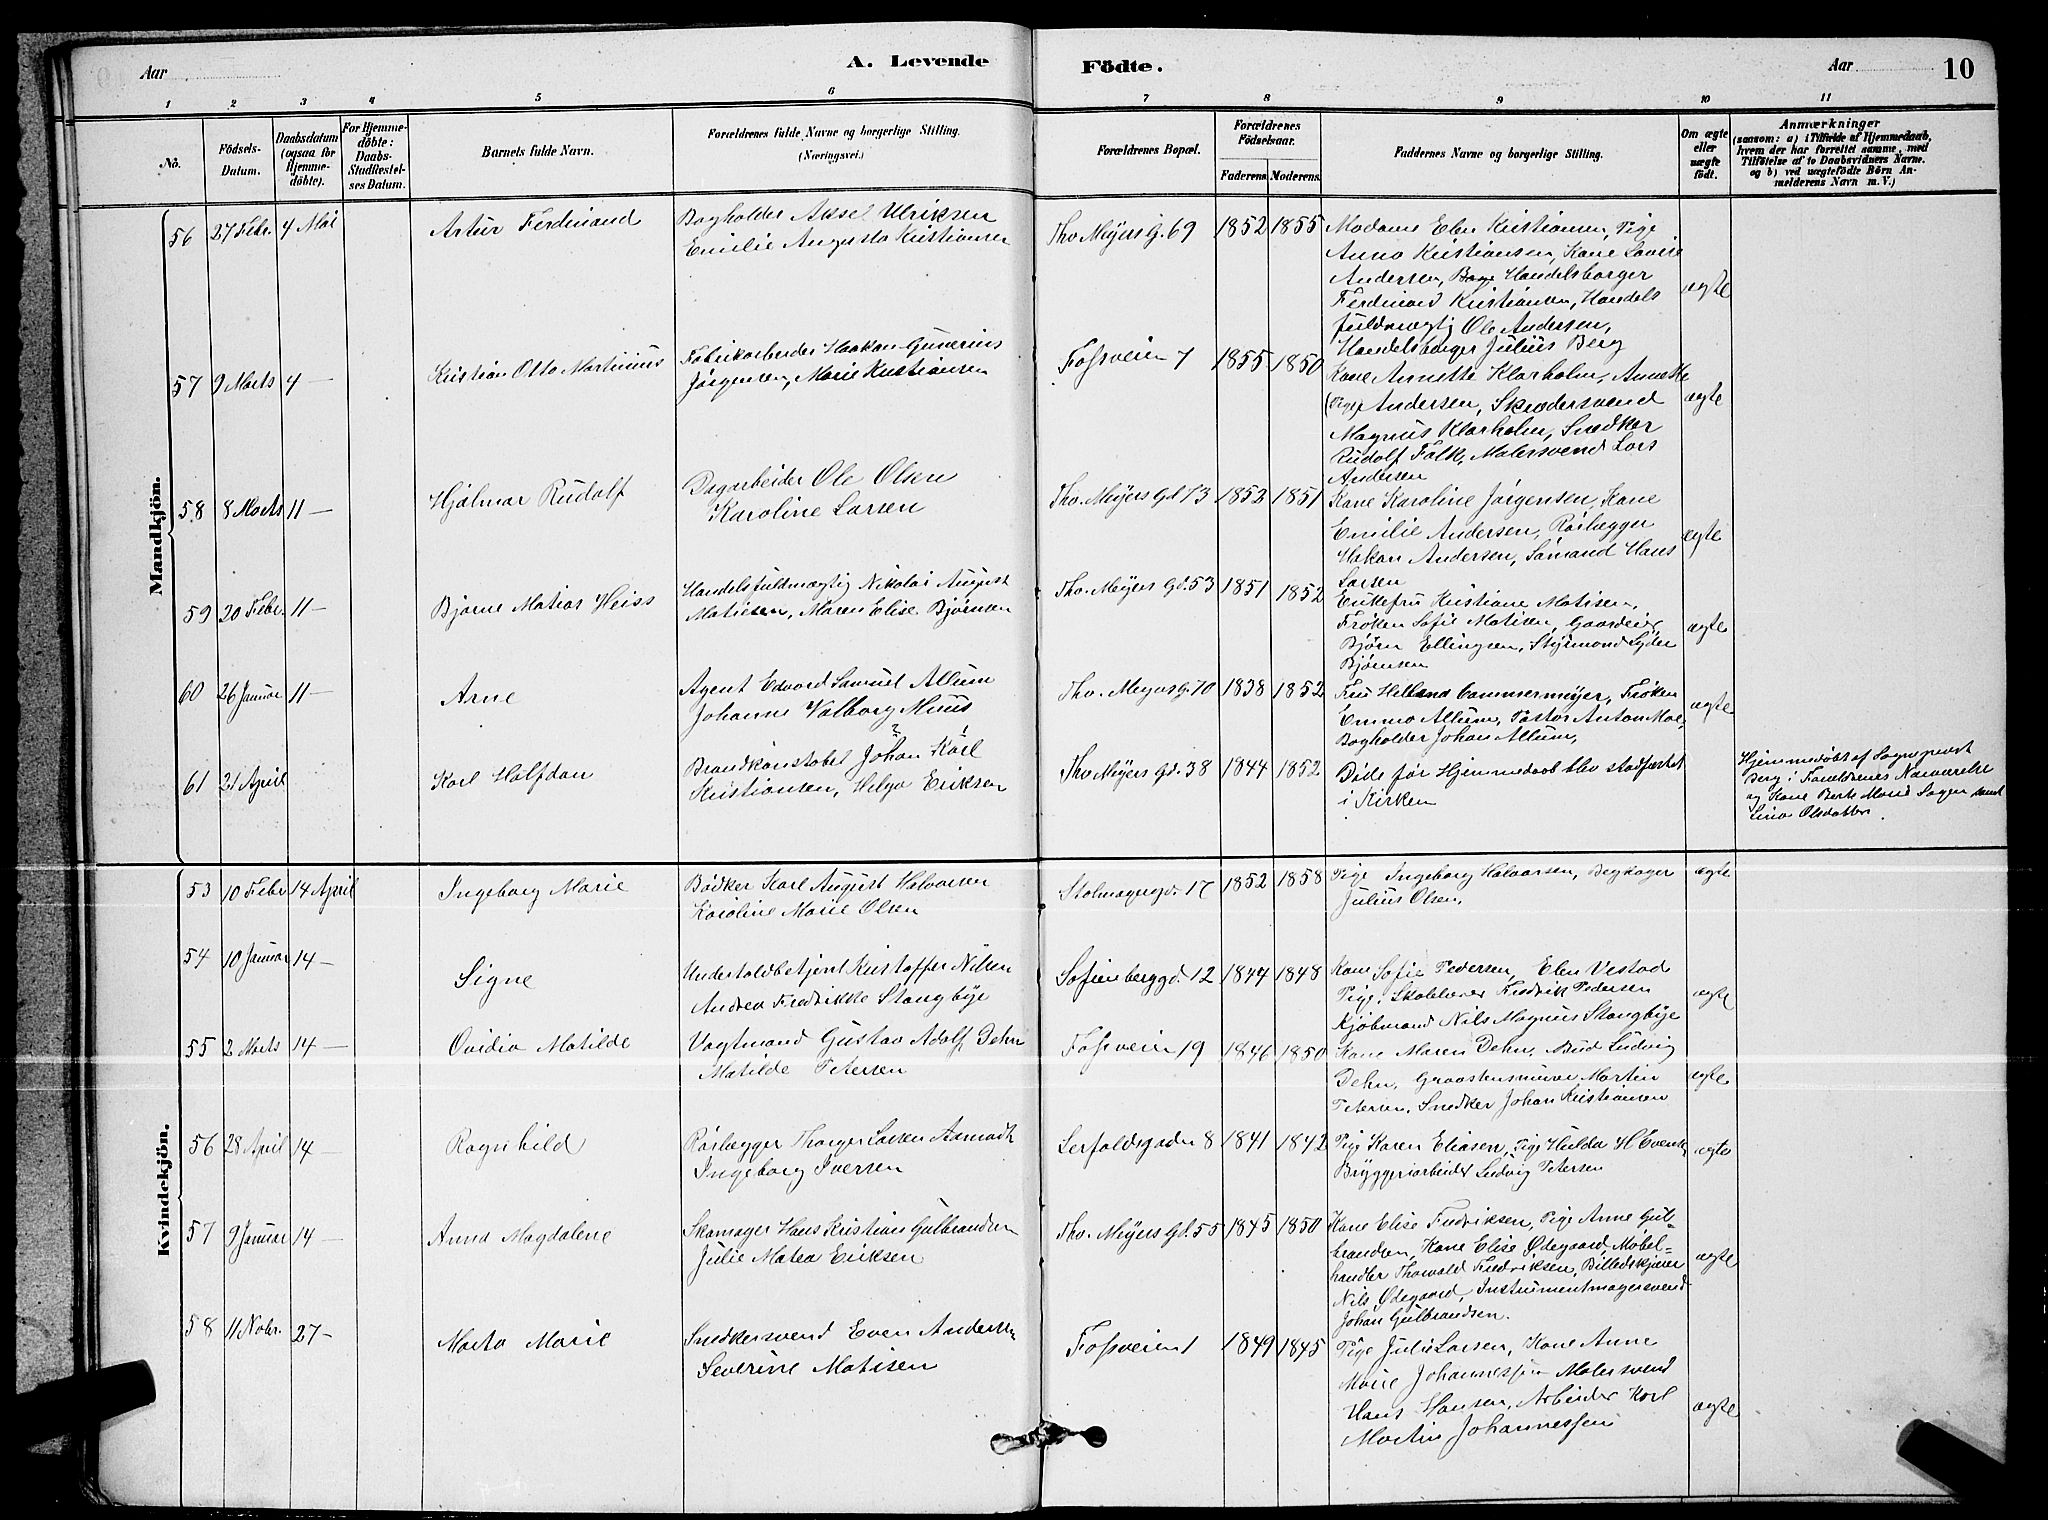 Aar
A. Levende
Födte.
Aar
10
1 2 3 4 5 6 7 8 9 10 11
No.
Födsels-
Datum.
Daabsdatum
(ogsaa for
Hjemme-
döbte).
For Hjemme-
döbte:
Daabs-
Stadfæstel-
ses Datum.
Barnets fulde Navn.
Forældrenes fulde Navne og borgerlige Stilling.
(Næringsvei.)
Forældrenes Bopæl.
Forældrenes
Födselsaar.
Faderens. Moderens.
Faddernes Navne og borgerlige Stilling.
Om ægte
eller
uægte
födt.
Anmærkninger
(saasom: a) i Tilfælde af Hjemmedaab,
hvem der har forrettet samme, med
Tilföielse af to Daabsvidners Navne.
og b) ved uægtefödte Börn An-
melderens Navn m. V.)
Mandkjön.
56 27 Febr. 4 Mai Artur Ferdinand
Bogholder Aksel Ulriksen
Emilie Augusta Kristiansen
Tho. Meyers G. 69 1852 1855
Madame Elen Kristiansen, Pige
Anna Kristiansen, Kone Lovise
Andersen, Handelsborger
Ferdinand Kristiansen, Handels
fuldmægtig Ole Andersen,
Handelsborger Julius Berg
ægte
57 9 Marts 4 — Kristian Otto Martinius
Fabrikarbeider Haakon Gunerius
Jørgensen, Marie Kristiansen
Fossveien 7 1855 1850
Kone Annette Klarholm, Annette
(Pige) Andersen, Skrædersvend
Magnus Klarholm, Snedker
Rudolf Falk, Malersvend Lars
Andersen
ægte
58 8 Marts 11 — Hjalmar Rudolf
Dagarbeider Ole Olsen
Karoline Larsen
Tho. Meyers Gd. 73 1852 1851
Kone Karoline Jørgensen, Kone
Emilie Andersen, Rørlægger
Hakon Andersen, Sømand Hans
Larsen
ægte
59 20 Febr. 11 — Bjarne Matias Heiss
Handelsfuldmægtig Nikolai August
Matiesen, Maren Elise Bjørnsen
Tho. Meyers Gd. 53 1851 1852
Enkefru Kristiane Matisen,
Frøken Sofie Matisen, Gaardeier
Bjørn Ellingsen, Styrmand Syder
Bjørnsen
ægte
60 26 Januar 11 — Arne
Agent Edvard Samuel Allum
Johanne Valborg Muus
Tho. Meyers G. 70 1838 1852
Fru Cammermeyer, Frøken
Emma Allum, Pastor Anton Moe,
Bogholder Johan Allum,
ægte
61 21 April Karl Halfdan
Brandkonstabel Johan Karl
Kristiansen, Helga Eriksen
Tho. Meyers Gd. 38 1844 1852
Døde før Hjemmedaab blev stadfæstet
i Kirken
Hjemmedøbt af Sogneprest
Berg i Forældrenes Nærværelse
og Kone Berte Marie Sagen samt
Lina Olsdatter.
Kvindekjön.
53 10 Febr 14 April Ingeborg Marie
Bødker Karl August Halvorsen
Karoline Marie Olsen
Stolmagergd. 17 1852 1858
Pige Ingeborg Halvorsen, Begkoger
Julius Olsen,
ægte
54 10 Januar 14 — Signe
Undertoldbetjent Kristoffer Nilsen
Andrea Fredrikke Stangbye
Sofienberggd. 12 1844 1848
Kone Sofie Pedersen, Elen Vestad
Pige, Skolelærer Fredrik Pedersen
Kjøbmand Nils Magnus Stangbye
ægte
55 2 Marts 14 — Ovidia Matilde
Vagtmand Gustav Adolf Dehn
Matilde Petersen
Fossveien 19 1846 1850
Kone Maren Dehn, Bud Ludvig
Dehn, Graastensmurer Martin
Petersen, Snedker Johan Kristiansen
ægte
56 28 April 14 — Ragnhild
Rørlægger Thorger Larsen Aamodt
Ingeborg Iversen
Seifaldsgaden 8 1841 1842
Pige Karen Eliasen, Pige Hulda H. Evensen
Bryggeriarbeider Ludvig Petersen
ægte
57 9 Januar 14 — Anna Magdalene
Skomager Hans Kristian Gulbrandsen
Julie Matea Eriksen
Tho. Meyers Gd. 55 1845 1850
Kone Elise Fredriksen, Pige Anne Gul-
brandsen, Kone Elise Ødegaard, Møbel-
handler Thorvald Fredriksen, Billedskjærer
Nils Ødegaard, Instrumentmagersvend
Johan Gulbrandsen.
ægte
58 11 Nobr. 27 — Marta Marie
Snedkersvend Even Andersen
Severine Matisen
Fossveien 1 1849 1845
Pige Julie Larsen, Kone Anne
Marie Johannessen Malersvend
Hans Hansen, Arbeider Karl
Martin Johannessen
ægte